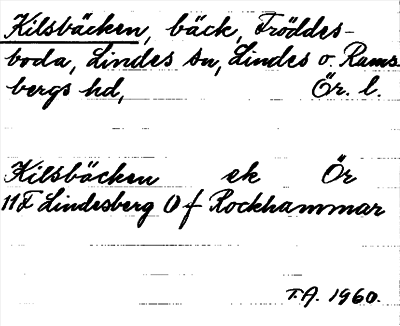 Kilsbäcken, bäck, Fröddes-
boda, Lindes sn, Lindes o. Rams-
bergs hd, Ör. l.
Kilsbäcken ek Ör
11F Lindesberg Of Rockhammar
T.A. 1960.